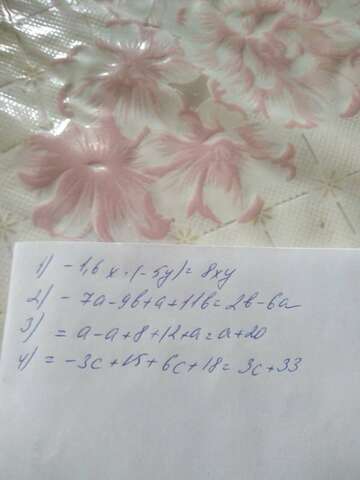 1) - 1,6 x · (- 5y) = 8xy
2) - 7a - 9b + a + 11b = 2b - 6a
3) = a - a + 8 + 12 + a = a + 20
4) = - 3c + 15 + 6c + 18 = 3c + 33